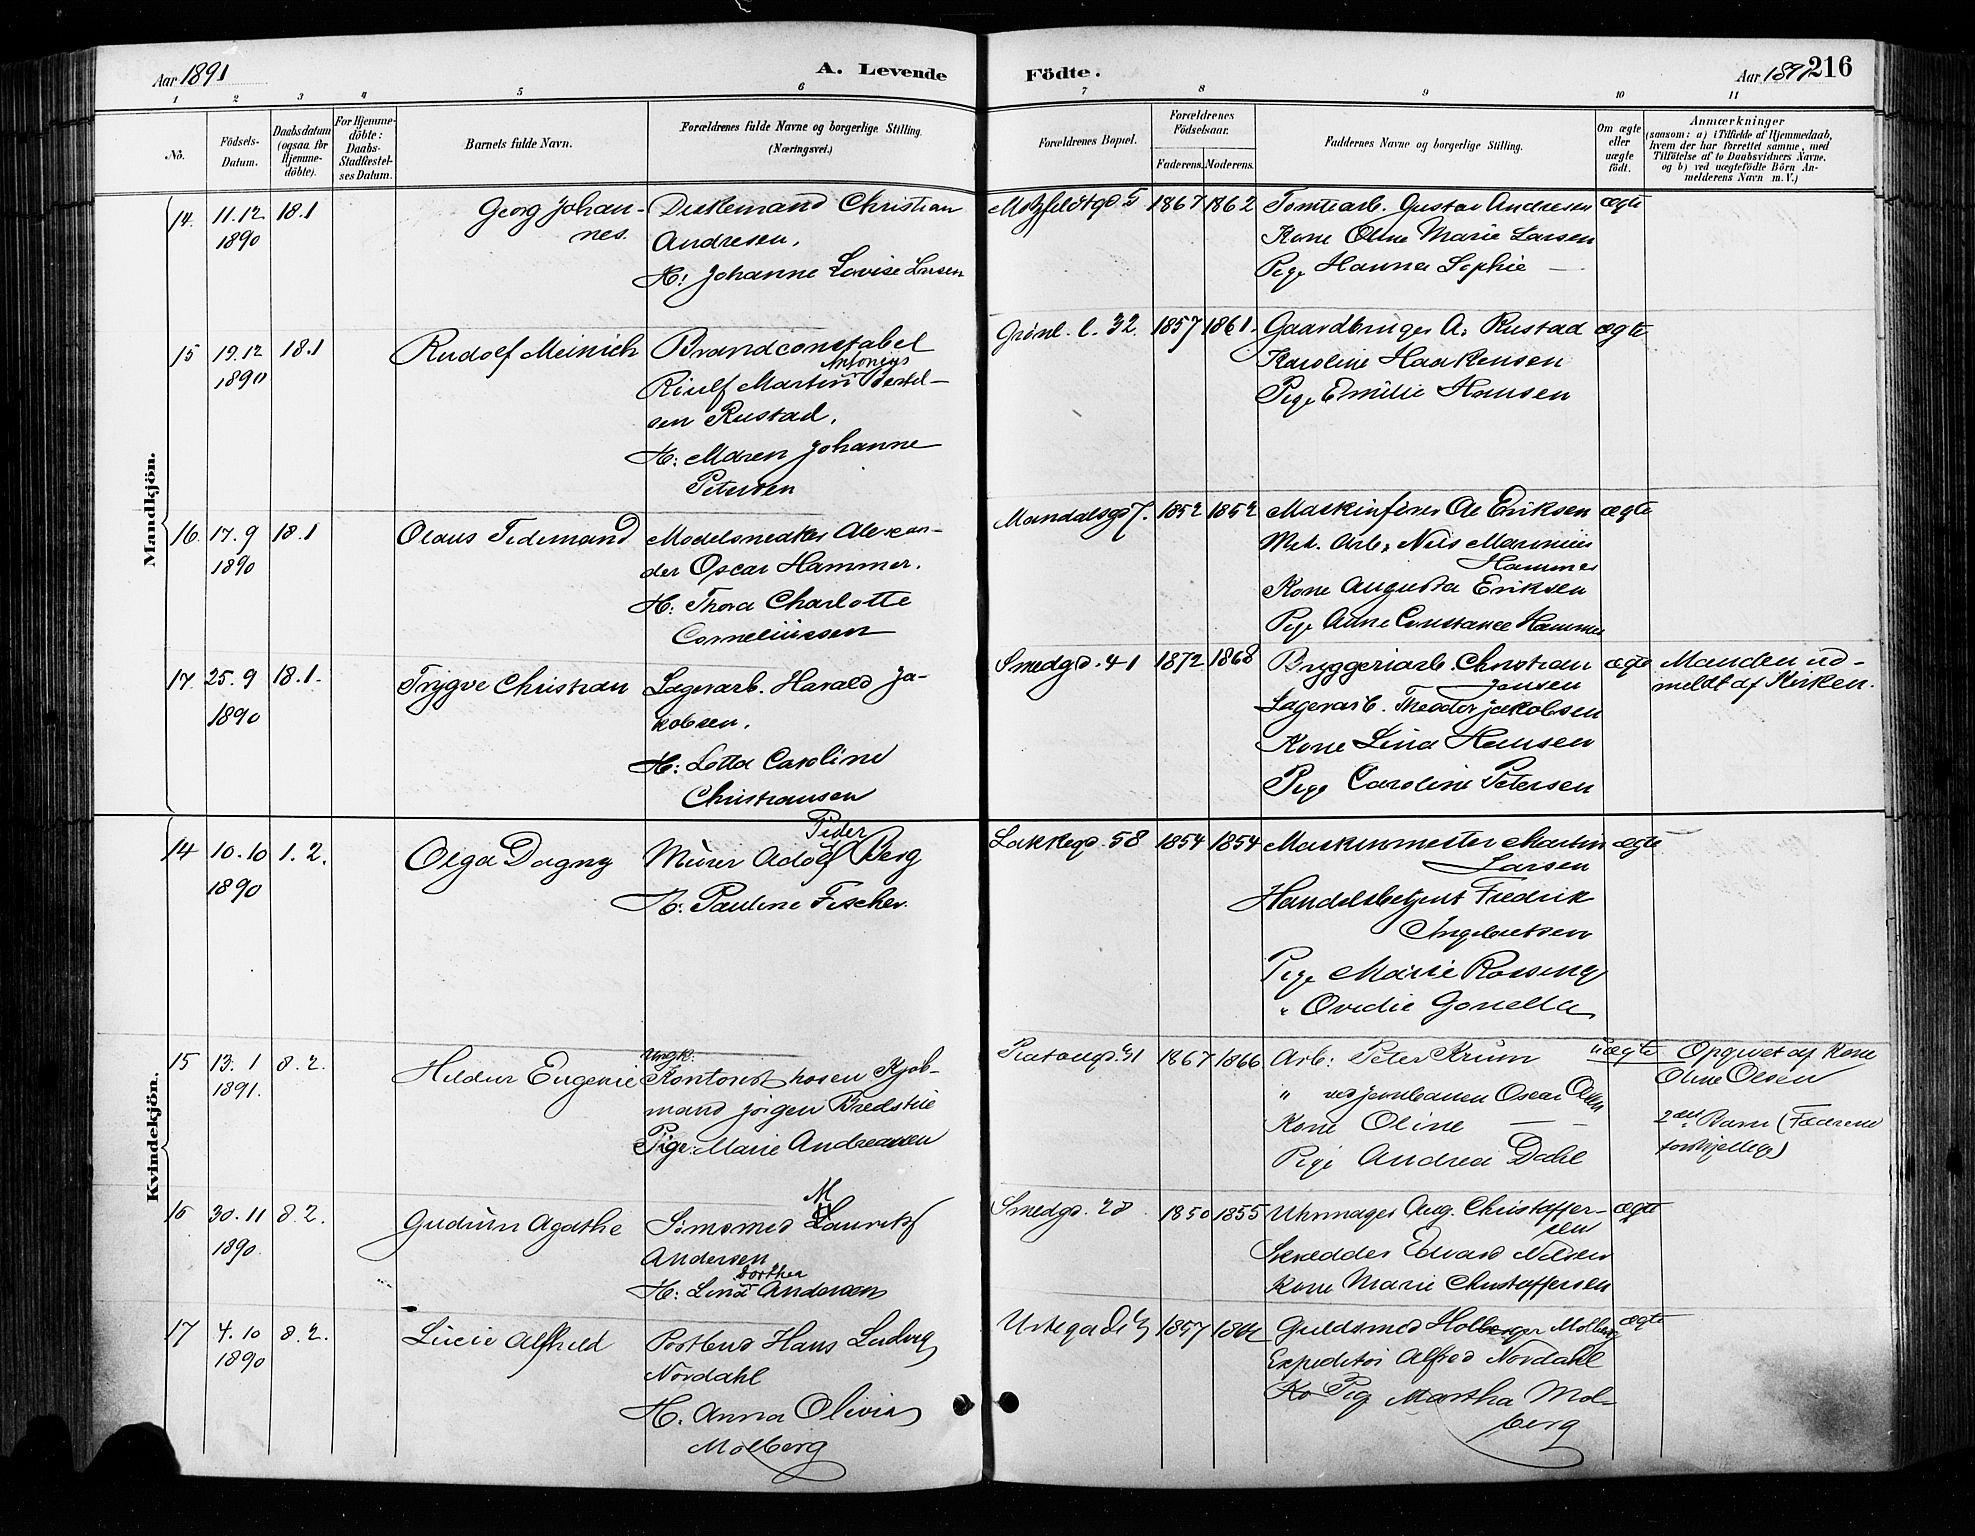 Aar 1891
A. Levende
Födte.
Aar 1891 216
1 2 3 4 5 6 7 8 9 10 11
No.
Födsels-
Datum.
Daabsdatum
(ogsaa for
Hjemme-
döbte).
For Hjemme-
döbte:
Daabs-
Stadfæstel-
ses Datum.
Barnets fulde Navn.
Forældrenes fulde Navne og borgerlige Stilling.
(Næringsvei.)
Forældrenes Bopæl.
Forældrenes
Födselsaar.
Faderens. Moderens.
Faddernes Navne og borgerlige Stilling.
Om ægte
eller
uægte
födt.
Anmærkninger
(saasom: a) i Tilfælde af Hjemmedaab,
hvem der har forrettet samme, med
Tilföielse af to Daabsvidners Navne.
og b) ved uægtefödte Börn An-
melderens Navn m. V.)
Mandkjön.
14. 11.12 1890 18.1
Georg Johan-
nes.
Christian
Andresen,
H: Johanne Lovise Larsen
Motzfeldtgd 5 1867 1862
Tomtearb. Gustav Andresen
Kone Oline Marie Larsen
Pige Hanna Sophie —
ægte
15 19.12 1890 18.1
Rudolf Meinich
Brandconstabel
Antonius
Riulf Martin Bertel-
sen Rustad,
H: Maren Johanne
Petersen
Grönl. l. 32 1857 1861.
Gaardbruger A. Rustad
Karoline Haakensen
Pige Emilie Hansen
ægte
16. 17.9 1890 18.1
Olaus Tidemand
Modelsnedker Alexan-
der Oscar Hammer.
H: Thora Charlotte
Corneliussen
Mandalsgd 7. 1852 1852
Maskinfører Ole Eriksen
Mek. Arb. Nils Marinius
Hammer
Kone Augusta Eriksen
Pige Anne Constance Hammer
ægte
17. 25.9 1890 18.1.
Trygve Christian
Lagerarb. Harald Ja-
kobsen.
H: Lotta Caroline
Christiansen
Smedgd. 41 1872 1868
Bryggeriarb. Christian
Jensen
Lagerarb. Theodor Jakobsen
Kone Lina Hansen
Pige Caroline Petersen
ægte
Manden ud-
meldt af Kirken.
Kvindekjön.
14 10.10 1890 1.2.
Olga Dagny
Peder
Murer Adolf Berg
H: Pauline Fischer.
Lakkegd. 58 1854 1854
Maskinmester Martin
Larsen
Handelsbetjent Fredrik
Ingebretsen
Pige Marie Rossing
" Ovidie Gonella
ægte
15 13.1 1891. 8.2.
Hildur Eugenie
Ungk.
Kontorist hosen Kjøb-
mand Jörgen Bredskie
Pige: Marie Andreassen
Platougd. 1867 1866
Arb: Peter Krum
" ved Jernbanen Oscar Olsen
Kone Oline —
Pige Andrea Dahl
uægte
Opgivet af Kone
Oline Olsen
2det Barn (Fædrene
forskjellige)
16 30.11 1890. 8.2.
Gudrun Agathe
M
Simsmed Lauritz
Andersen
Dorthea
H: Lina Andersen
Smedgd. 28 1850 1855
Uhrmager Aug. Christoffer-
sen
Skrædder Edvard Nilsen
Kone Marie Christoffersen
ægte
17 4.10 1890 8.2.
Lucie Alfhild
Postbud Hans Ludvig
Nordahl
H. Anna Olivia
Molberg
Urtegaden 1857
Guldsmed Holberger Molberg
Expeditör Alfred Nordahl
Ko Pig Martha Mol-
berg
ægte